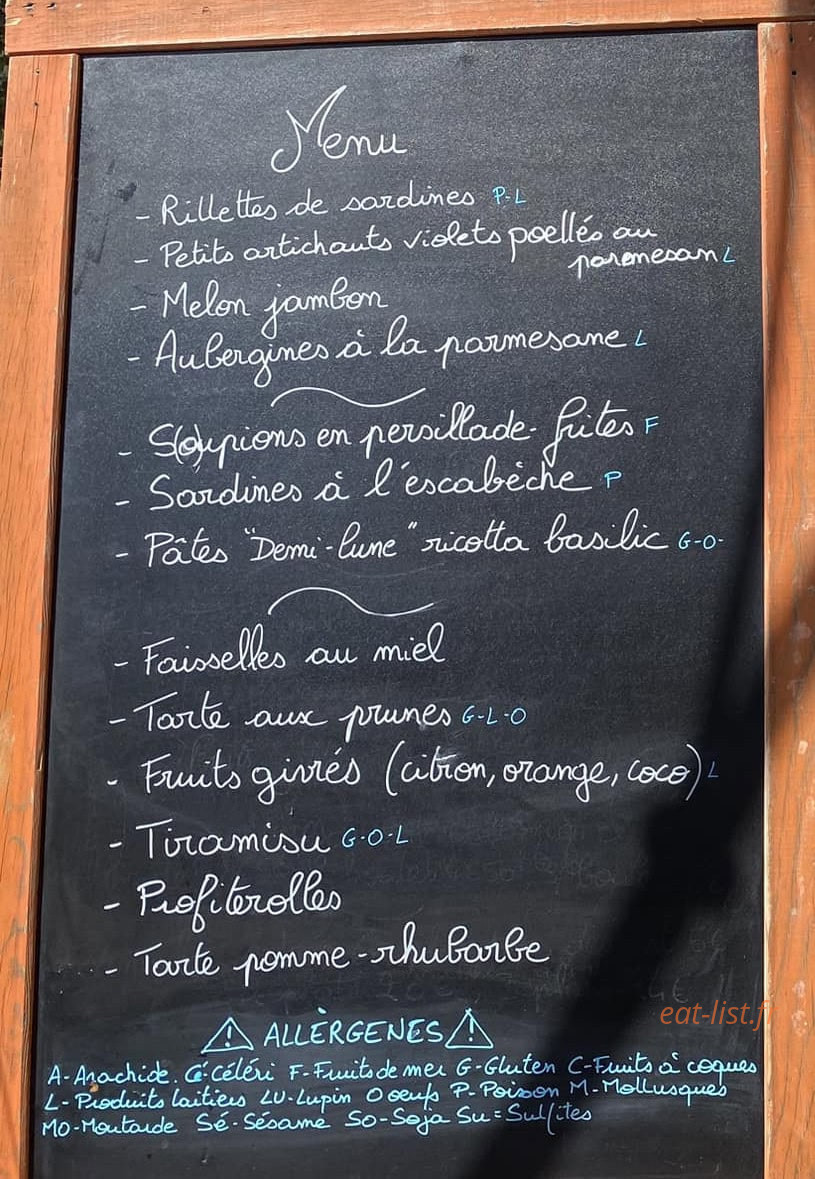 Menu
- Rillettes de sardines P-L
- Petits artichauts violets poellés au
parmesan L
- Melon jambon
- Aubergines à la parmesane L
- S(o)upions en persillade - frites F
- Sardines à l'escabèche P
- Pâtes "Demi-lune" ricotta basilic G-O-
- Faisselles au miel
- Tarte aux prunes G-L-O
- Fruits givrés (citron, orange, coco) L
- Tiramisu G-O-L
- Profiterolles
- Tarte pomme-rhubarbe
eat-list.f
⚠ ALLÈRGENES ⚠
A-Arachide. Cé-Céléri F-Fruits de mer G-Gluten C-Fruits à coques
L-Produits laitiers LU-Lupin O oeufs P-Poisson M-Mollusques
MO-Moutarde Sé-Sésame So-Soja Su=Sulfites